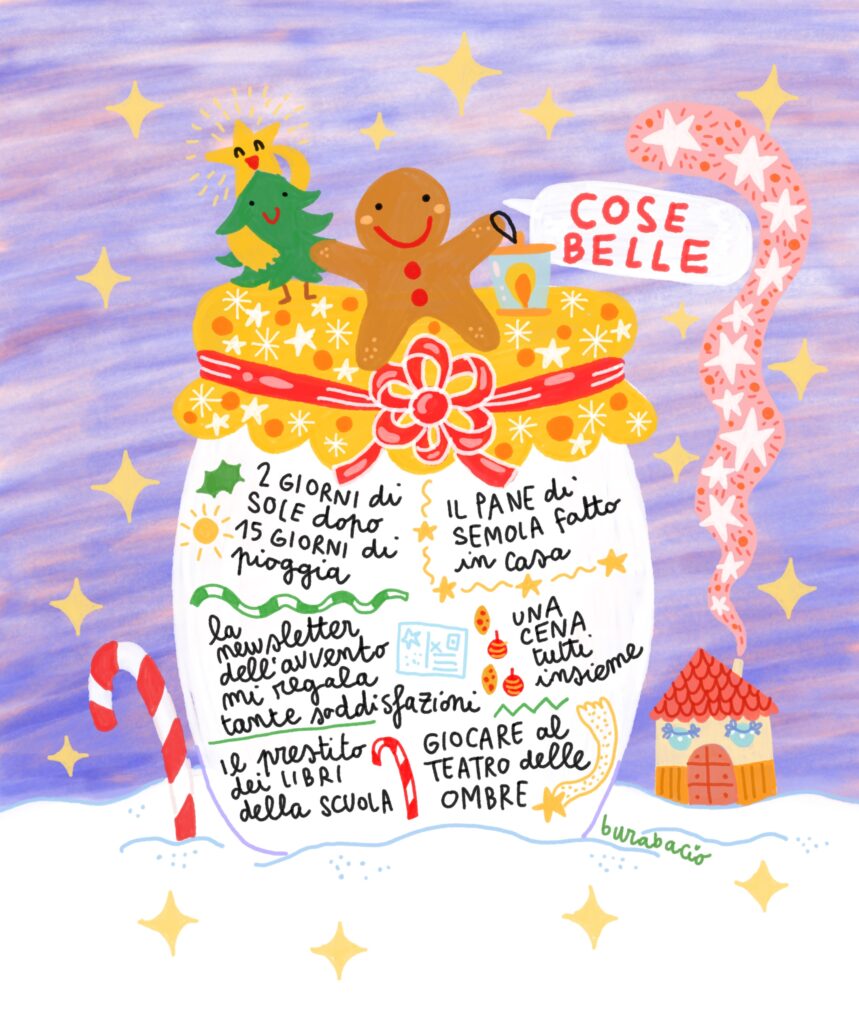 COSE
BELLE
2 GIORNI di
SOLE dopo
15 GIORNI di
pioggia
IL PANE di
SEMOLA fatto
in casa
la
newsletter
dell'avvento
mi regala
tante soddisfazioni
UNA
CENA
tutti
insieme
il prestito
dei LIBRI
della SCUOLA
GIOCARE al
TEATRO delle
OMBRE
burabacio